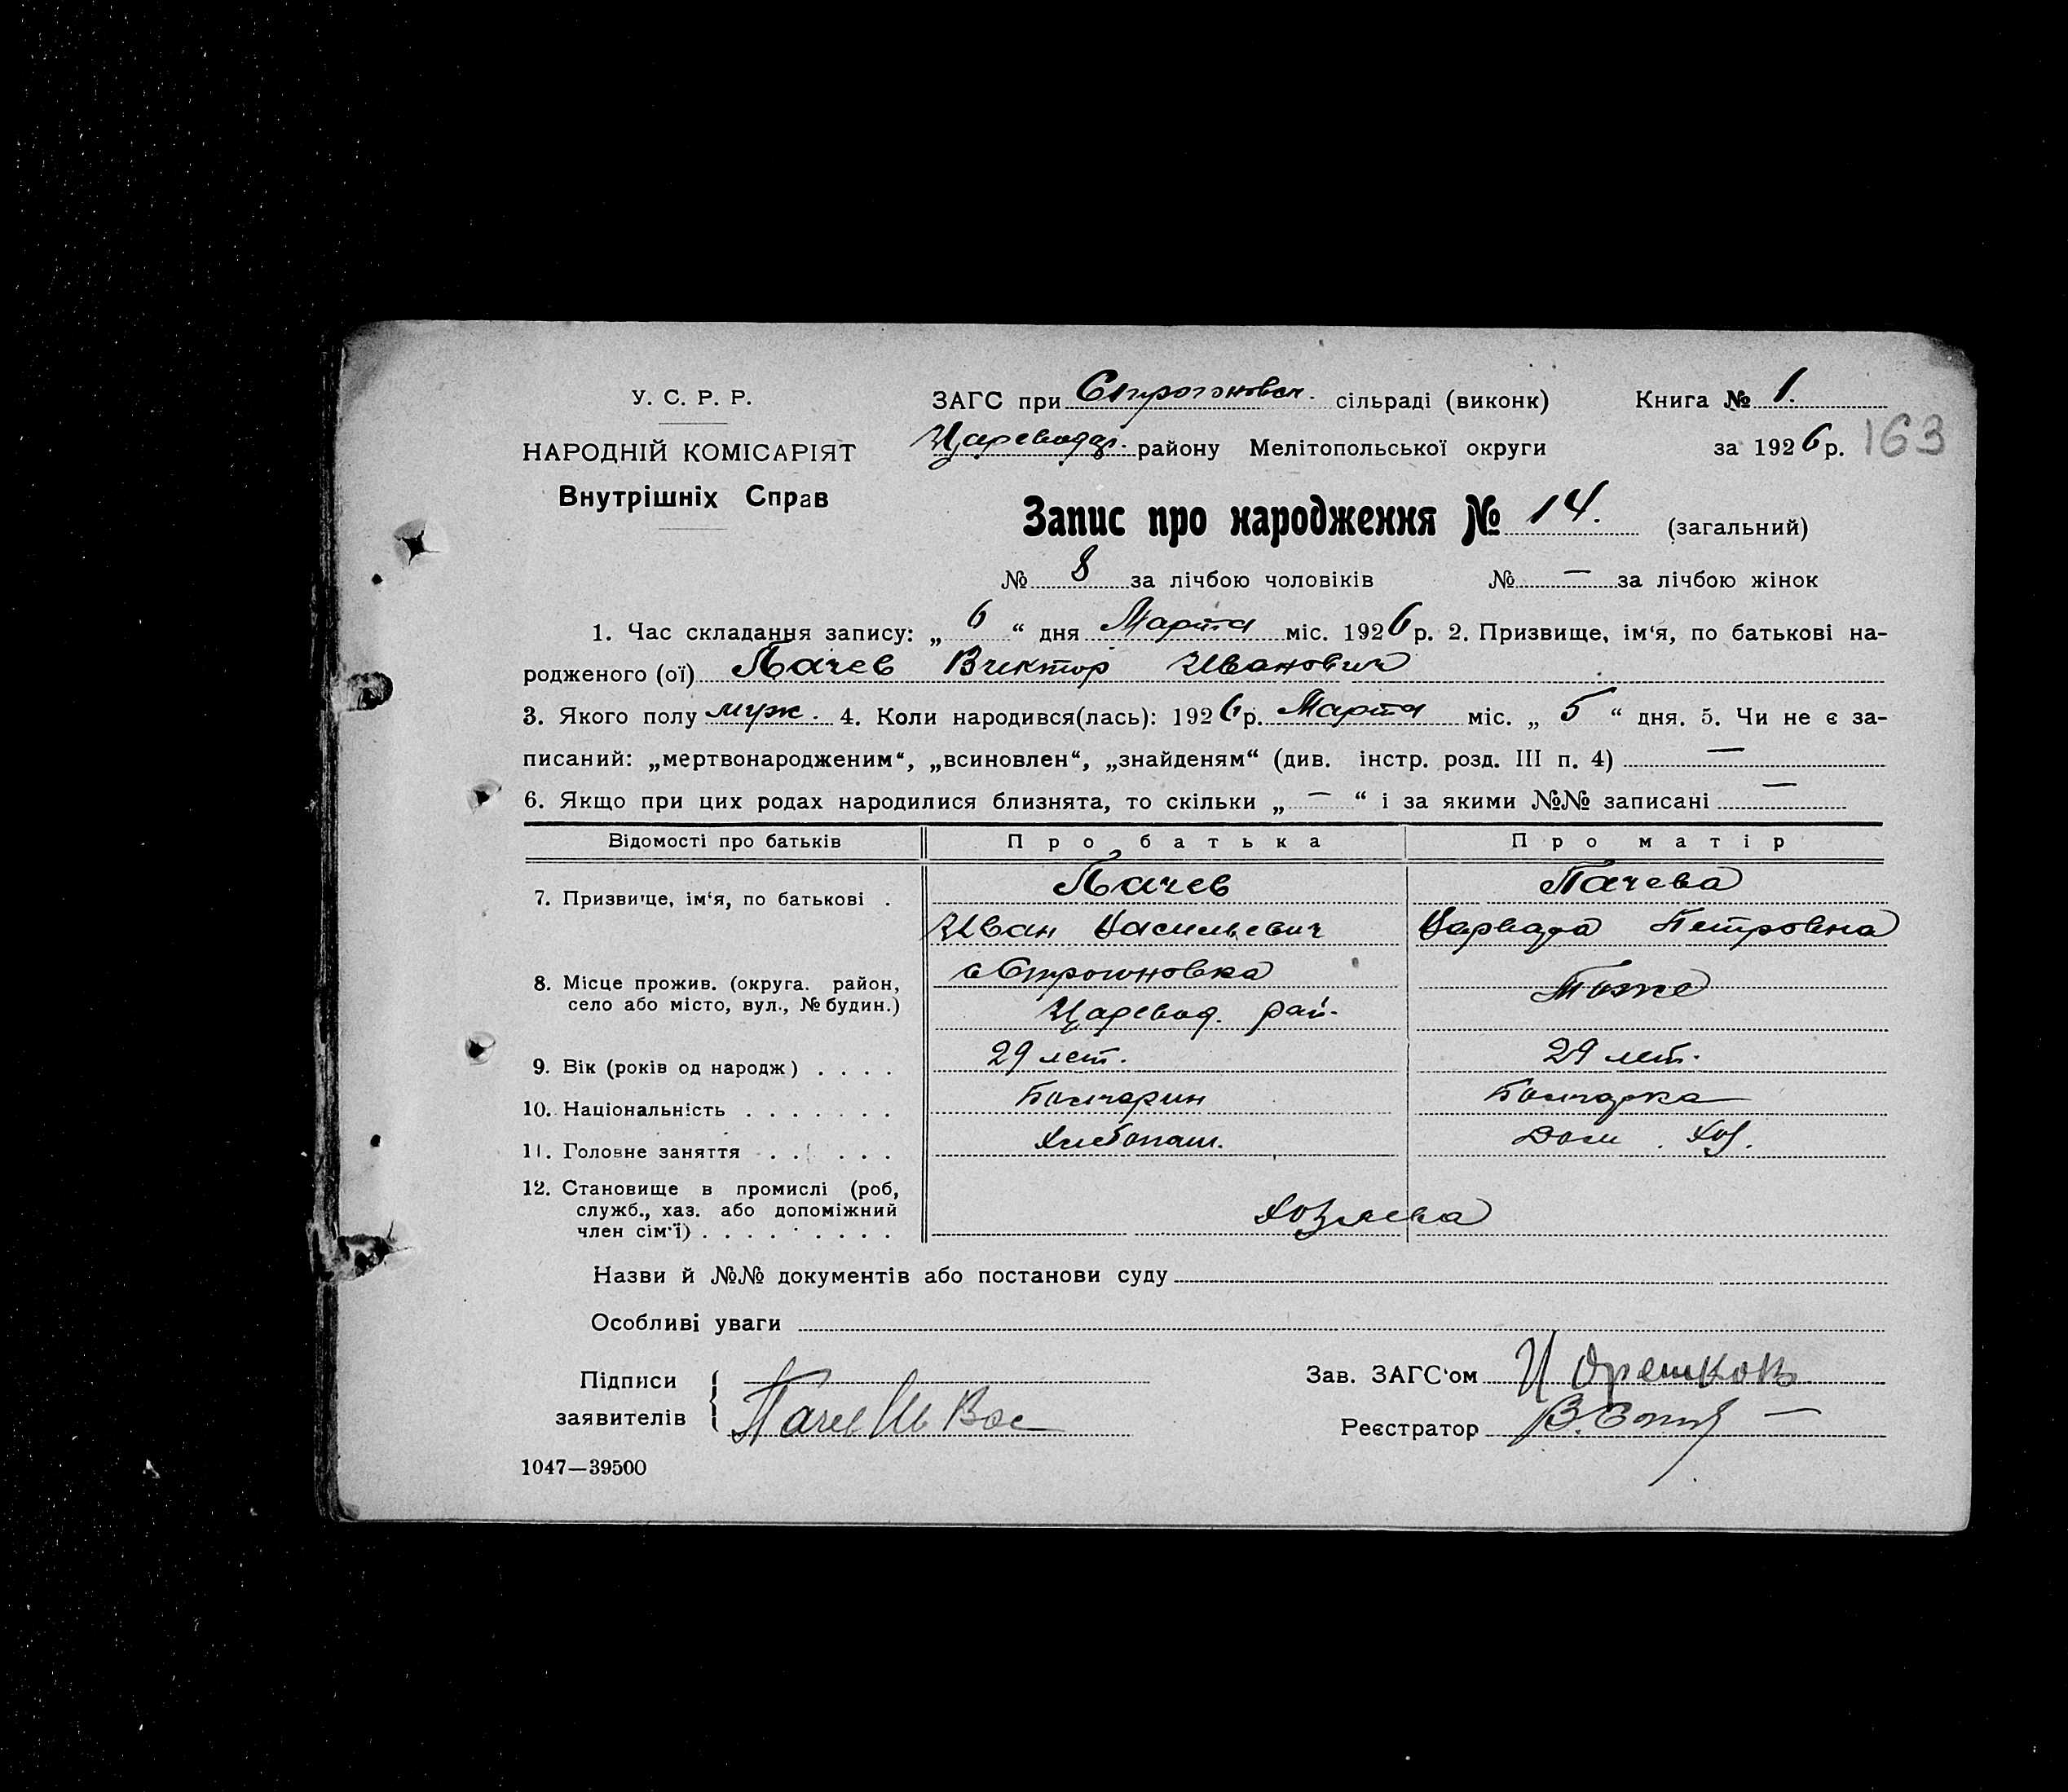 У. С. Р. Р.
НАРОДНІЙ КОМІСАРІЯТ
Внутрішніх Справ
ЗАГС при Строгоновск. сільраді (виконк)
Царевод. району Мелітопольської округи
Книга № 1.
за 1926 р. 163
Запис про народження № 14. (загальний)
№ 8 за лічбою чоловіків № — за лічбою жінок
1. Час складання запису: „ 6 “ дня Марта міс. 1926 р. 2. Призвище, ім‘я, по батькові на-
родженого (ої) Пачев Виктор Иванович
3. Якого полу муж. 4. Коли народився(лась): 1926 р. Марта міс. „ 5 “ дня. 5. Чи не є за-
писаний: „мертвонародженим“, „всиновлен“, „знайденям“ (див. інстр. розд. III п. 4) —
6. Якщо при цих родах народилися близнята, то скільки „ — “ і за якими №№ записані —
Відомості про батьків Про батька Про матір
7. Призвище, ім‘я, по батькові . Пачев Пачева
Иван Васильевич Варвара Петровна
8. Місце прожив. (округа. район, село або місто, вул., № будин.) с Строгоновка Тоже
Царевод. рай.
9. Вік (років од народж) . . . . 29 лет. 29 лет.
10. Національність . . . . . . . Болгарин Болгарка
11. Головне заняття . . . . . . Хлебопаш. Дом. Хоз.
12. Становище в промислі (роб,
служб., хаз. або допоміжний
член сім‘ї) . . . . . . . . Хозяева
Назви й №№ документів або постанови суду
Особливі уваги
Підписи
заявителів Пачев Ив Вас
Зав. ЗАГС‘ом И Орешков
Реєстратор В.
1047—39500